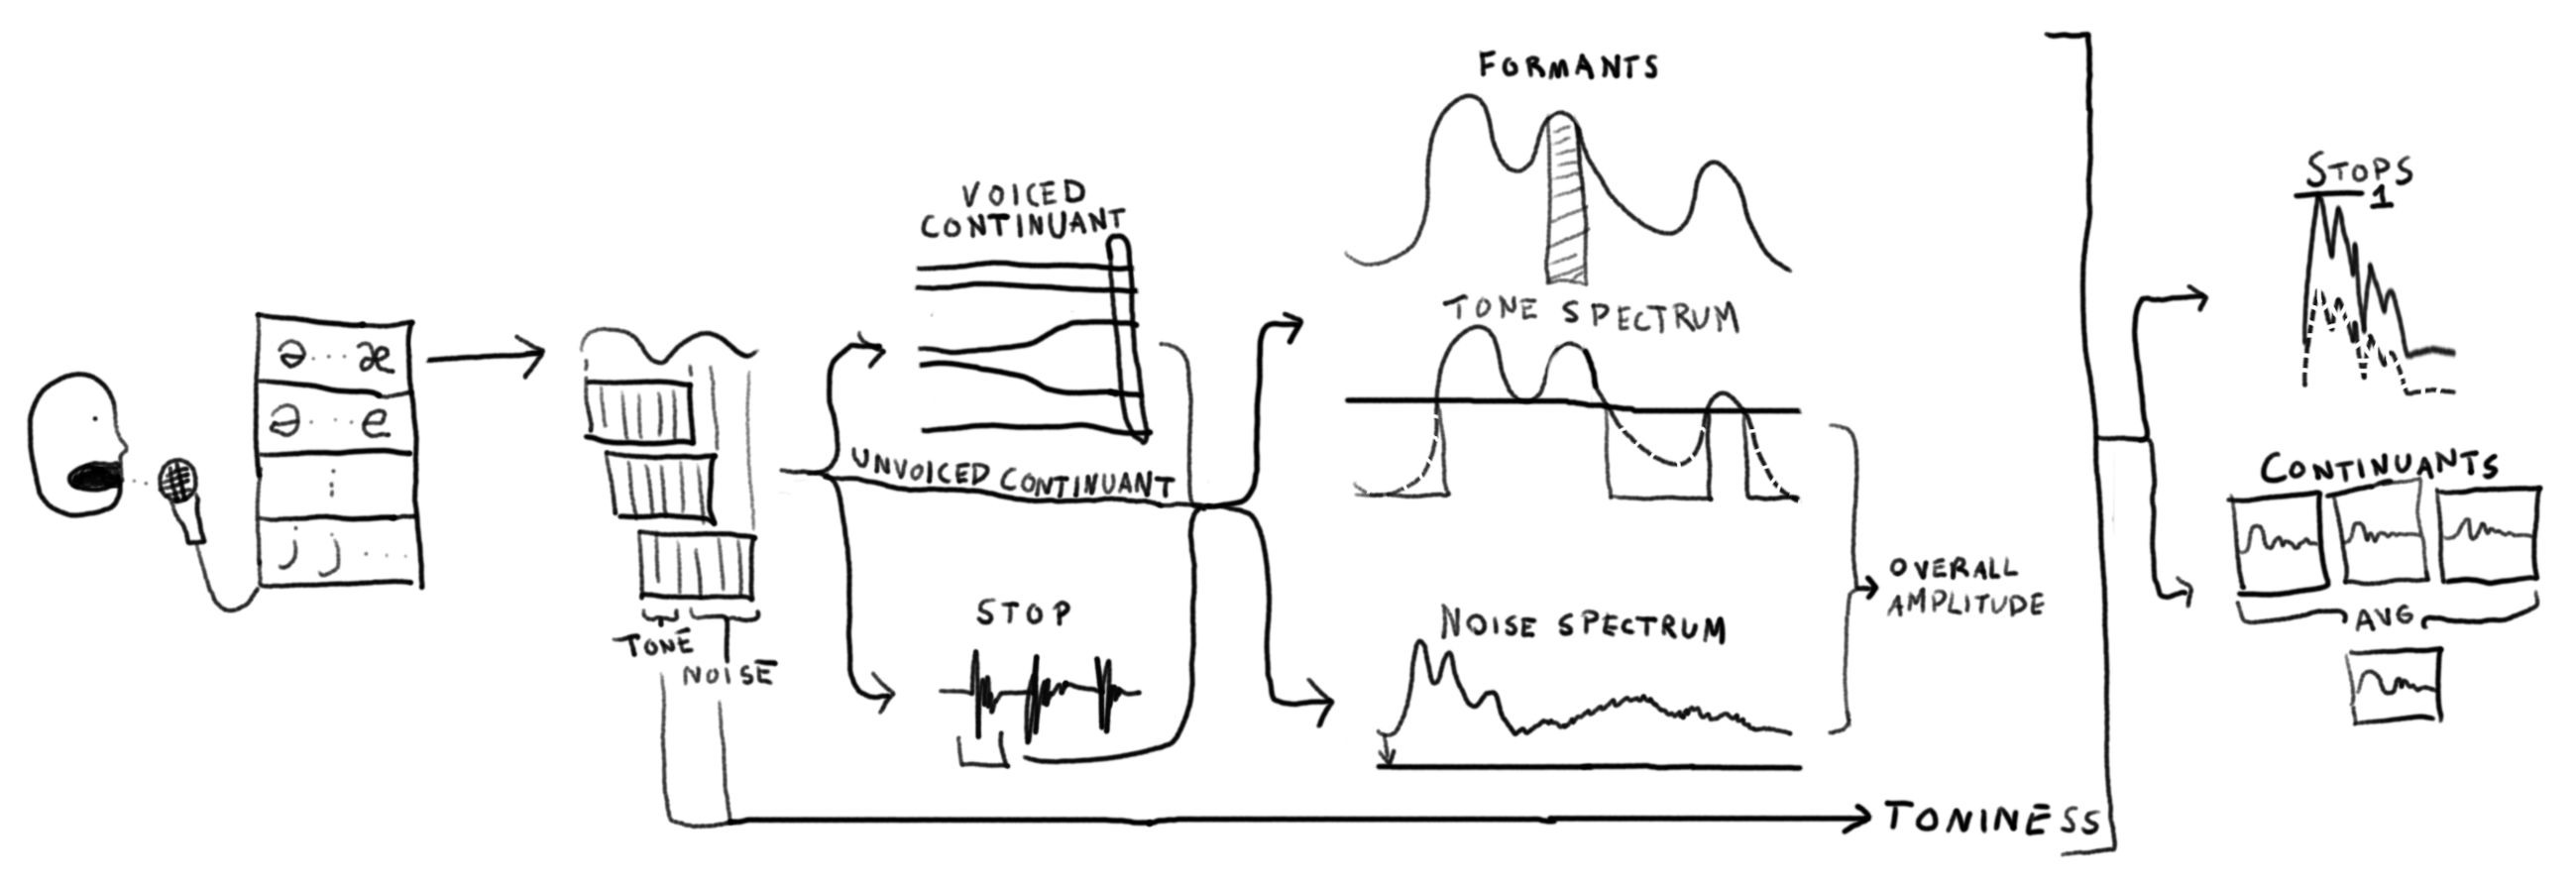 ə ... æ
ə ... e
⋮
j j ....
TONE
NOISE
VOICED
CONTINUANT
UNVOICED CONTINUANT
STOP
FORMANTS
TONE SPECTRUM
NOISE SPECTRUM
OVERALL
AMPLITUDE
TONINESS
STOPS
1
CONTINUANTS
AVG